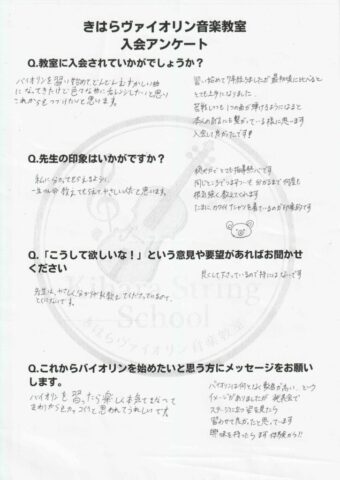 きはらヴァイオリン音楽教室
入会アンケート
Q.教室に入会されていかがでしょうか?
バイオリンを習い始めて、どんどんむずかしい曲
になってきたけど色々な曲にちょうせんしたいと思い
これからもつづけたいと思います。
習い始めて7年経ちましたが最初頃に比べると
とても上手になりました。
苦戦しつつも1つの曲が弾けるようになると
本人の自信にも繋がっている様に思います
入会して良かったです!!
Q.先生の印象はいかがですか?
私に分かってもらえるように、
一生けん命教えてもらえてやさしいなと思います。
穏やかでとても指導熱心です
同じところでつまずつも分かるまで何度も
根気強く教えてくれます
たまに、カワイイTシャツを着ているのが印象的です
Q.「こうして欲しいな!」という意見や要望があればお聞かせ
ください
先生は、やさしく分かりやすく教えてくださっているので、
とくにないです。
良くして下さっているので特にはないです
Kihara String
School
きはらヴァイオリン音楽教室
Q.これからバイオリンを始めたいと思う方にメッセージをお願い
します。
バイオリンを習ったら楽しくお友だちもできて
まわりからカッコイイと思われてうれしいです。
バイオリンは何となく敷居が高い、という
イメージがありましたが発表会で
ステージに立つ姿を見たら
習わせて良かったと思っています
興味を持ったらまず体験から!!